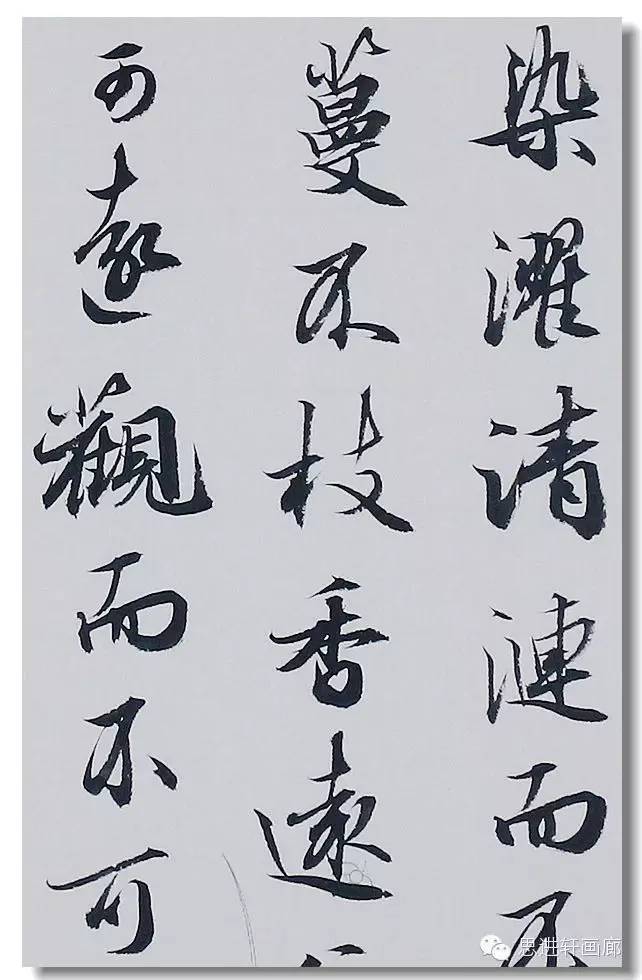 染濯清漣而不
蔓不枝香遠
可遠觀而不可
思进轩画廊